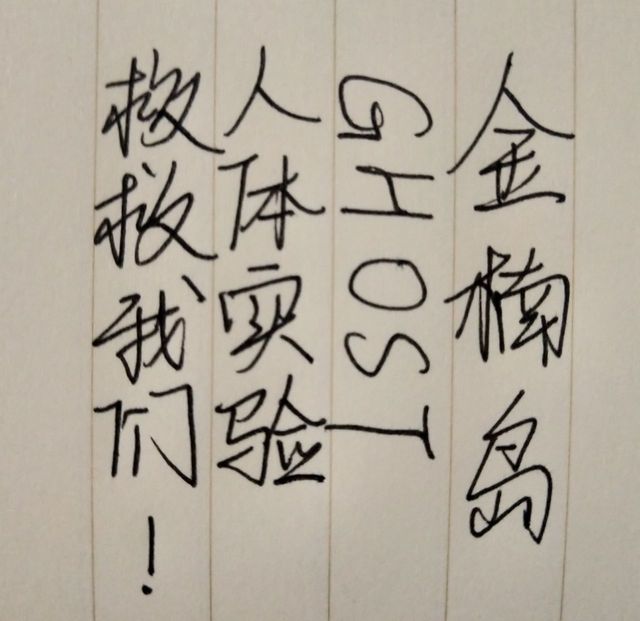 金楠岛
GHOST
人体实验
救救我们！